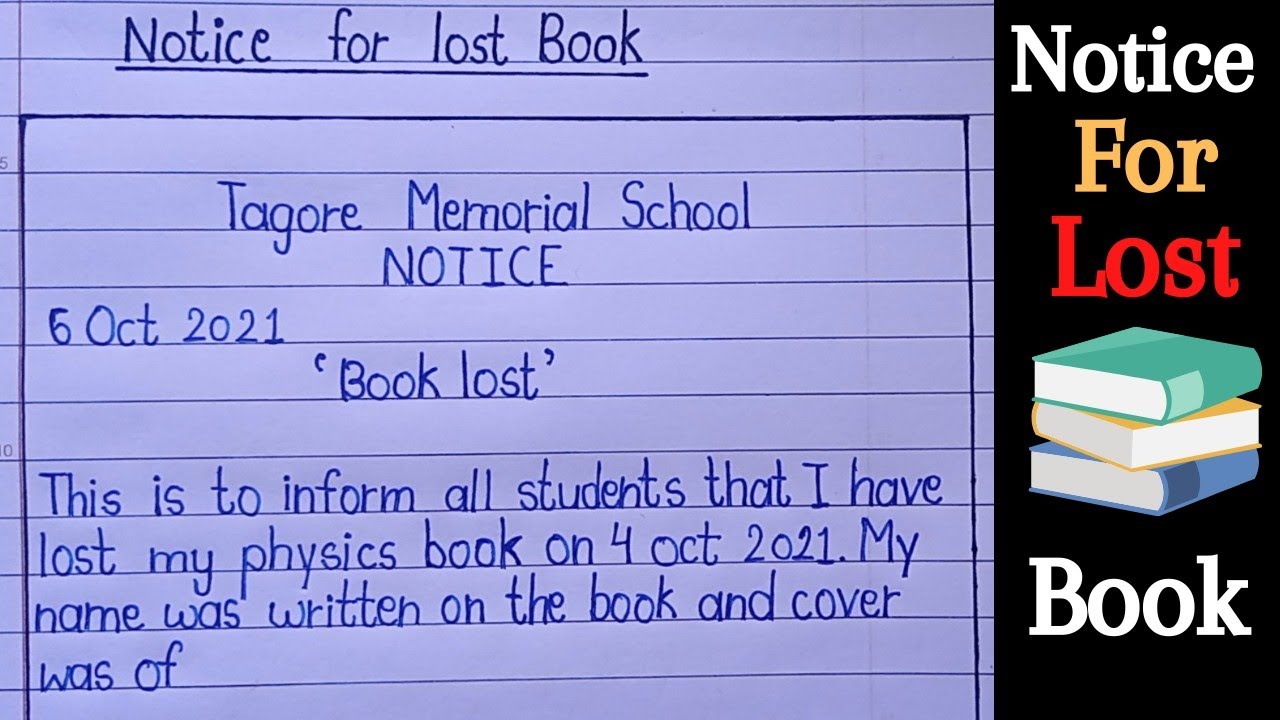 Notice for lost Book
5
Tagore Memorial School
NOTICE
6 Oct 2021
'Book lost'
10
This is to inform all students that I have
lost my physics book on 4 oct 2021. My
name was written on the book and cover
was of
Notice
For
Lost
Book